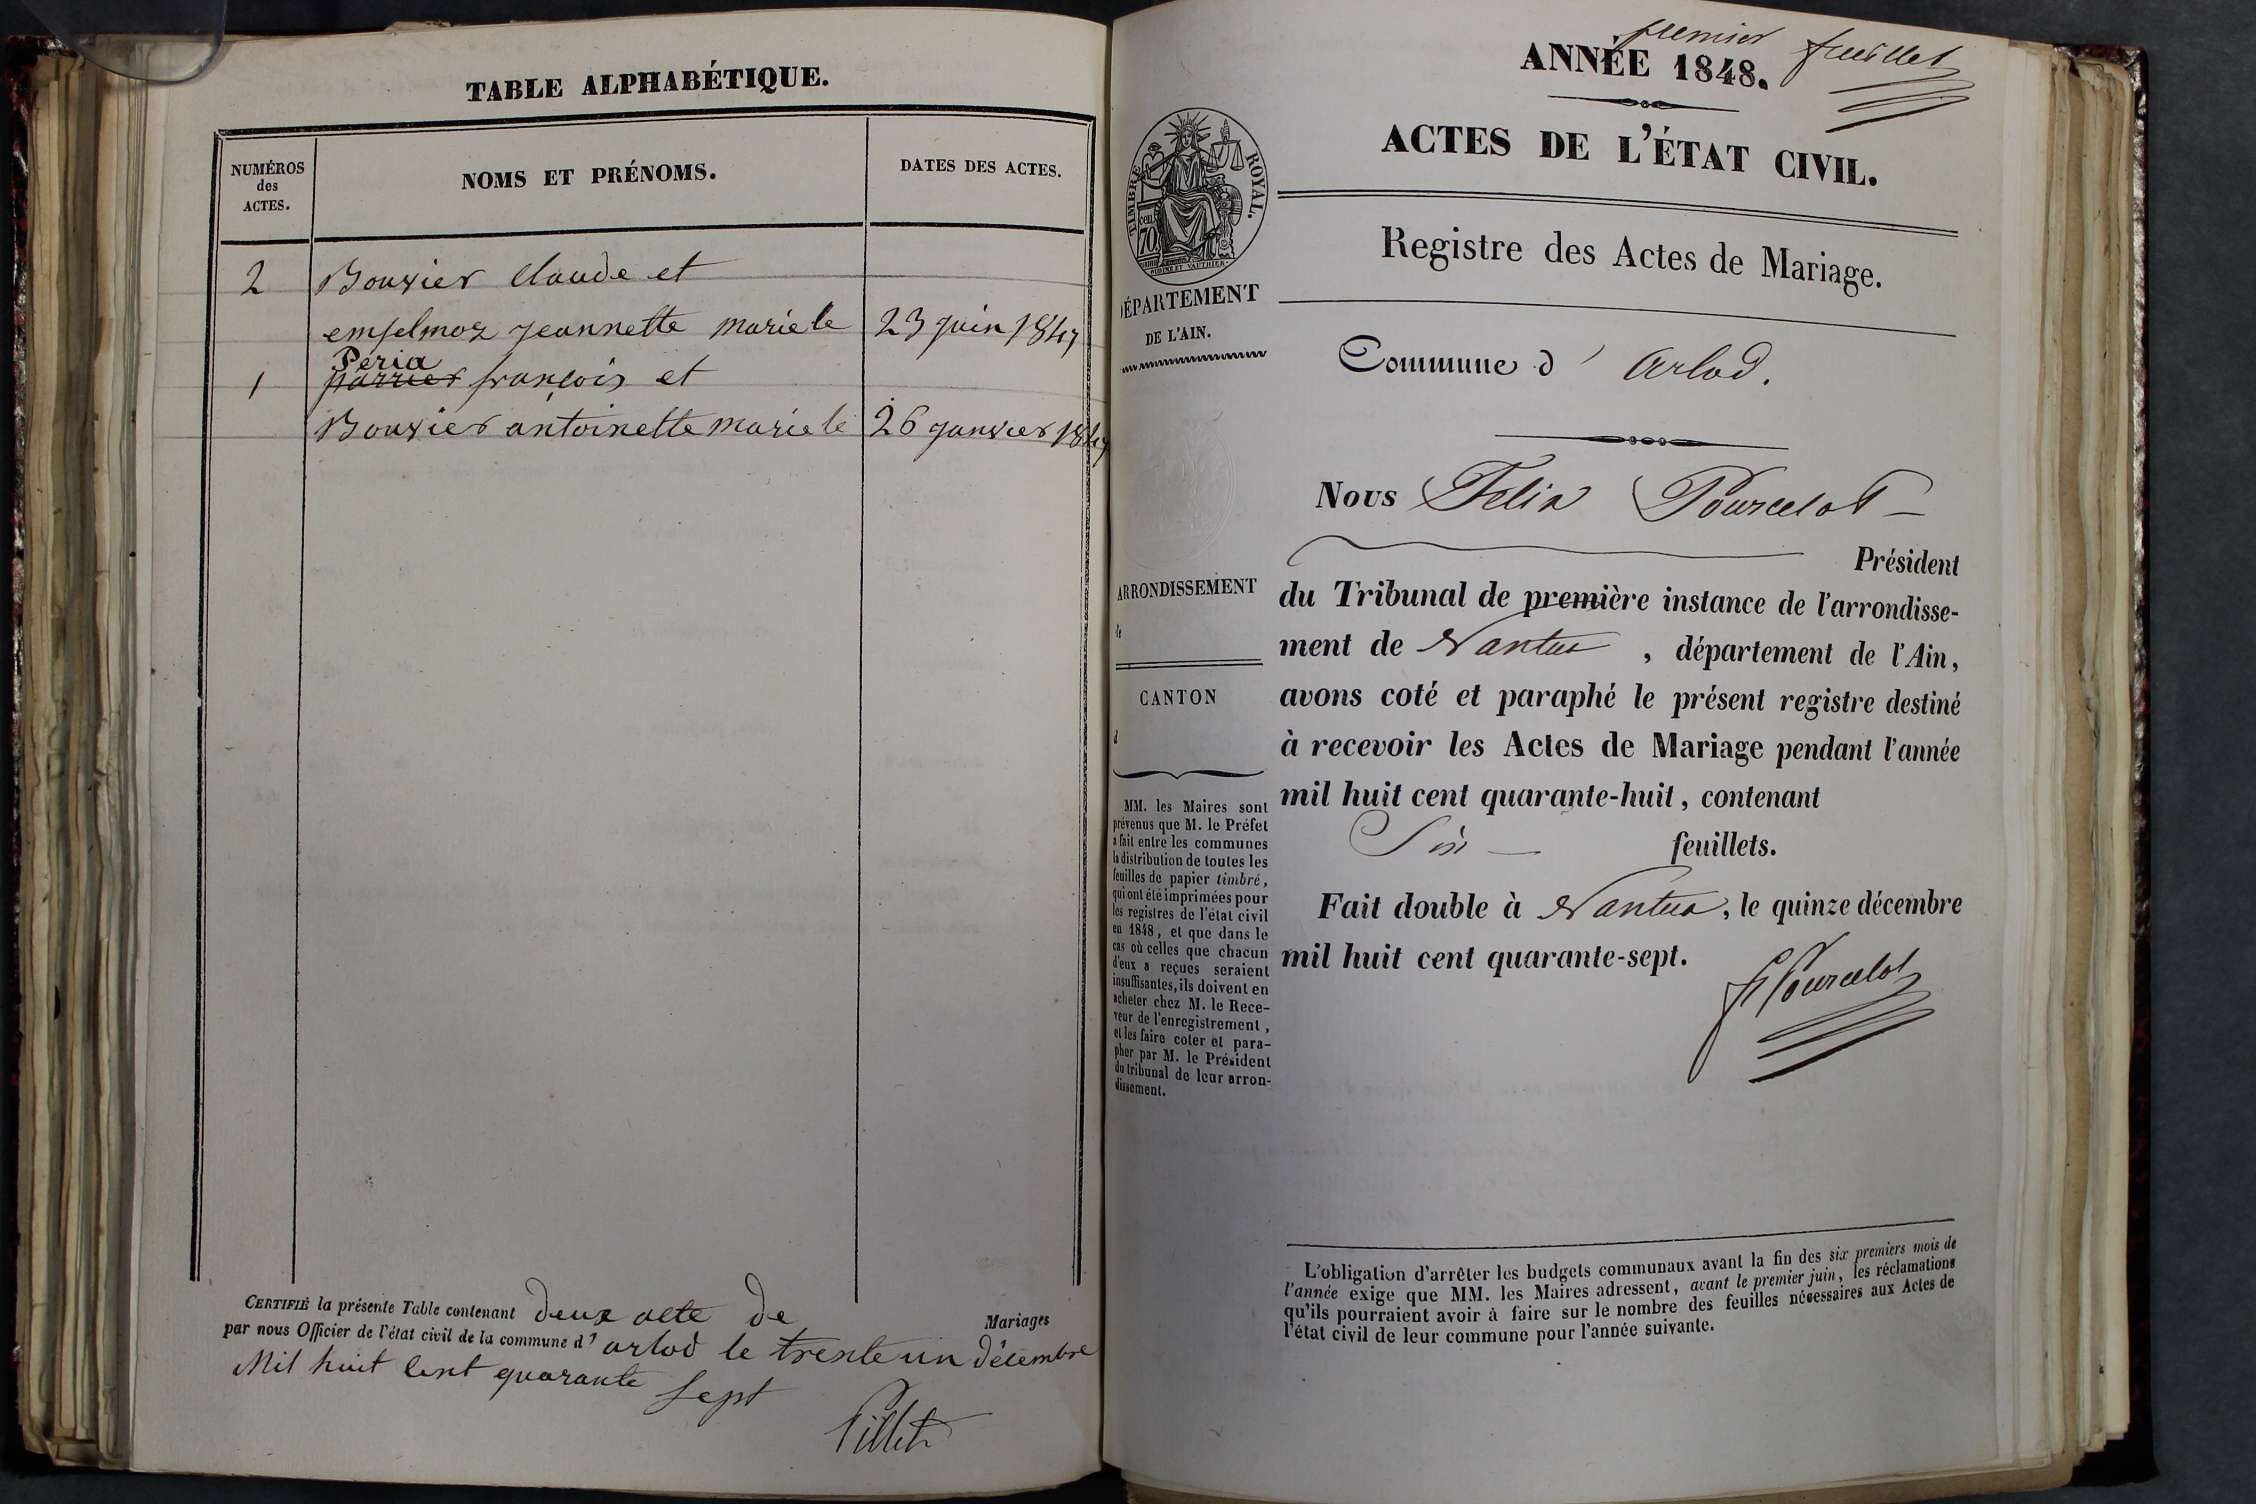 TABLE ALPHABÉTIQUE.
NUMÉROS
des
ACTES.
NOMS ET PRÉNOMS.
DATES DES ACTES.
2 Bouvier Claude et
emselmoz jeannette marié le 23 juin 1847
Peria
1 françois et
Bouvier antoinette marié le 26 janvier 1847
CERTIFIÉ la présente Table contenant deux acte de Mariages
par nous Officier de l'état civil de la commune d' arlod le trente un décembre
Mil huit cent quarante sept
Pillet
premier feuillet
ANNÉE 1848.
ACTES DE L'ÉTAT CIVIL.
Registre des Actes de Mariage.
TIMBRE ROYAL.
cen
70
DÉPARTEMENT
DE L'AIN.
Commune d' Arlod.
Nous Felix Pourcelot
Président
du Tribunal de première instance de l'arrondisse-
ment de Nantua, département de l'Ain,
avons coté et paraphé le présent registre destiné
à recevoir les Actes de Mariage pendant l'année
mil huit cent quarante-huit, contenant
Six feuillets.
Fait double à Nantua, le quinze décembre
mil huit cent quarante-sept.
F Pourcelot
ARRONDISSEMENT
de
CANTON
d
MM. les Maires sont
prévenus que M. le Préfet
a fait entre les communes
la distribution de toutes les
feuilles de papier timbré,
qui ont été imprimées pour
les registres de l'état civil
en 1848, et que dans le
cas où celles que chacun
d'eux a reçues seraient
insuffisantes, ils doivent en
acheter chez M. le Rece-
veur de l'enregistrement,
et les faire coter et para-
pher par M. le Président
du tribunal de leur arron-
dissement.
L'obligation d'arrêter les budgets communaux avant la fin des six premiers mois de
l'année exige que MM. les Maires adressent, avant le premier juin, les réclamations
qu'ils pourraient avoir à faire sur le nombre des feuilles nécessaires aux Actes de
l'état civil de leur commune pour l'année suivante.